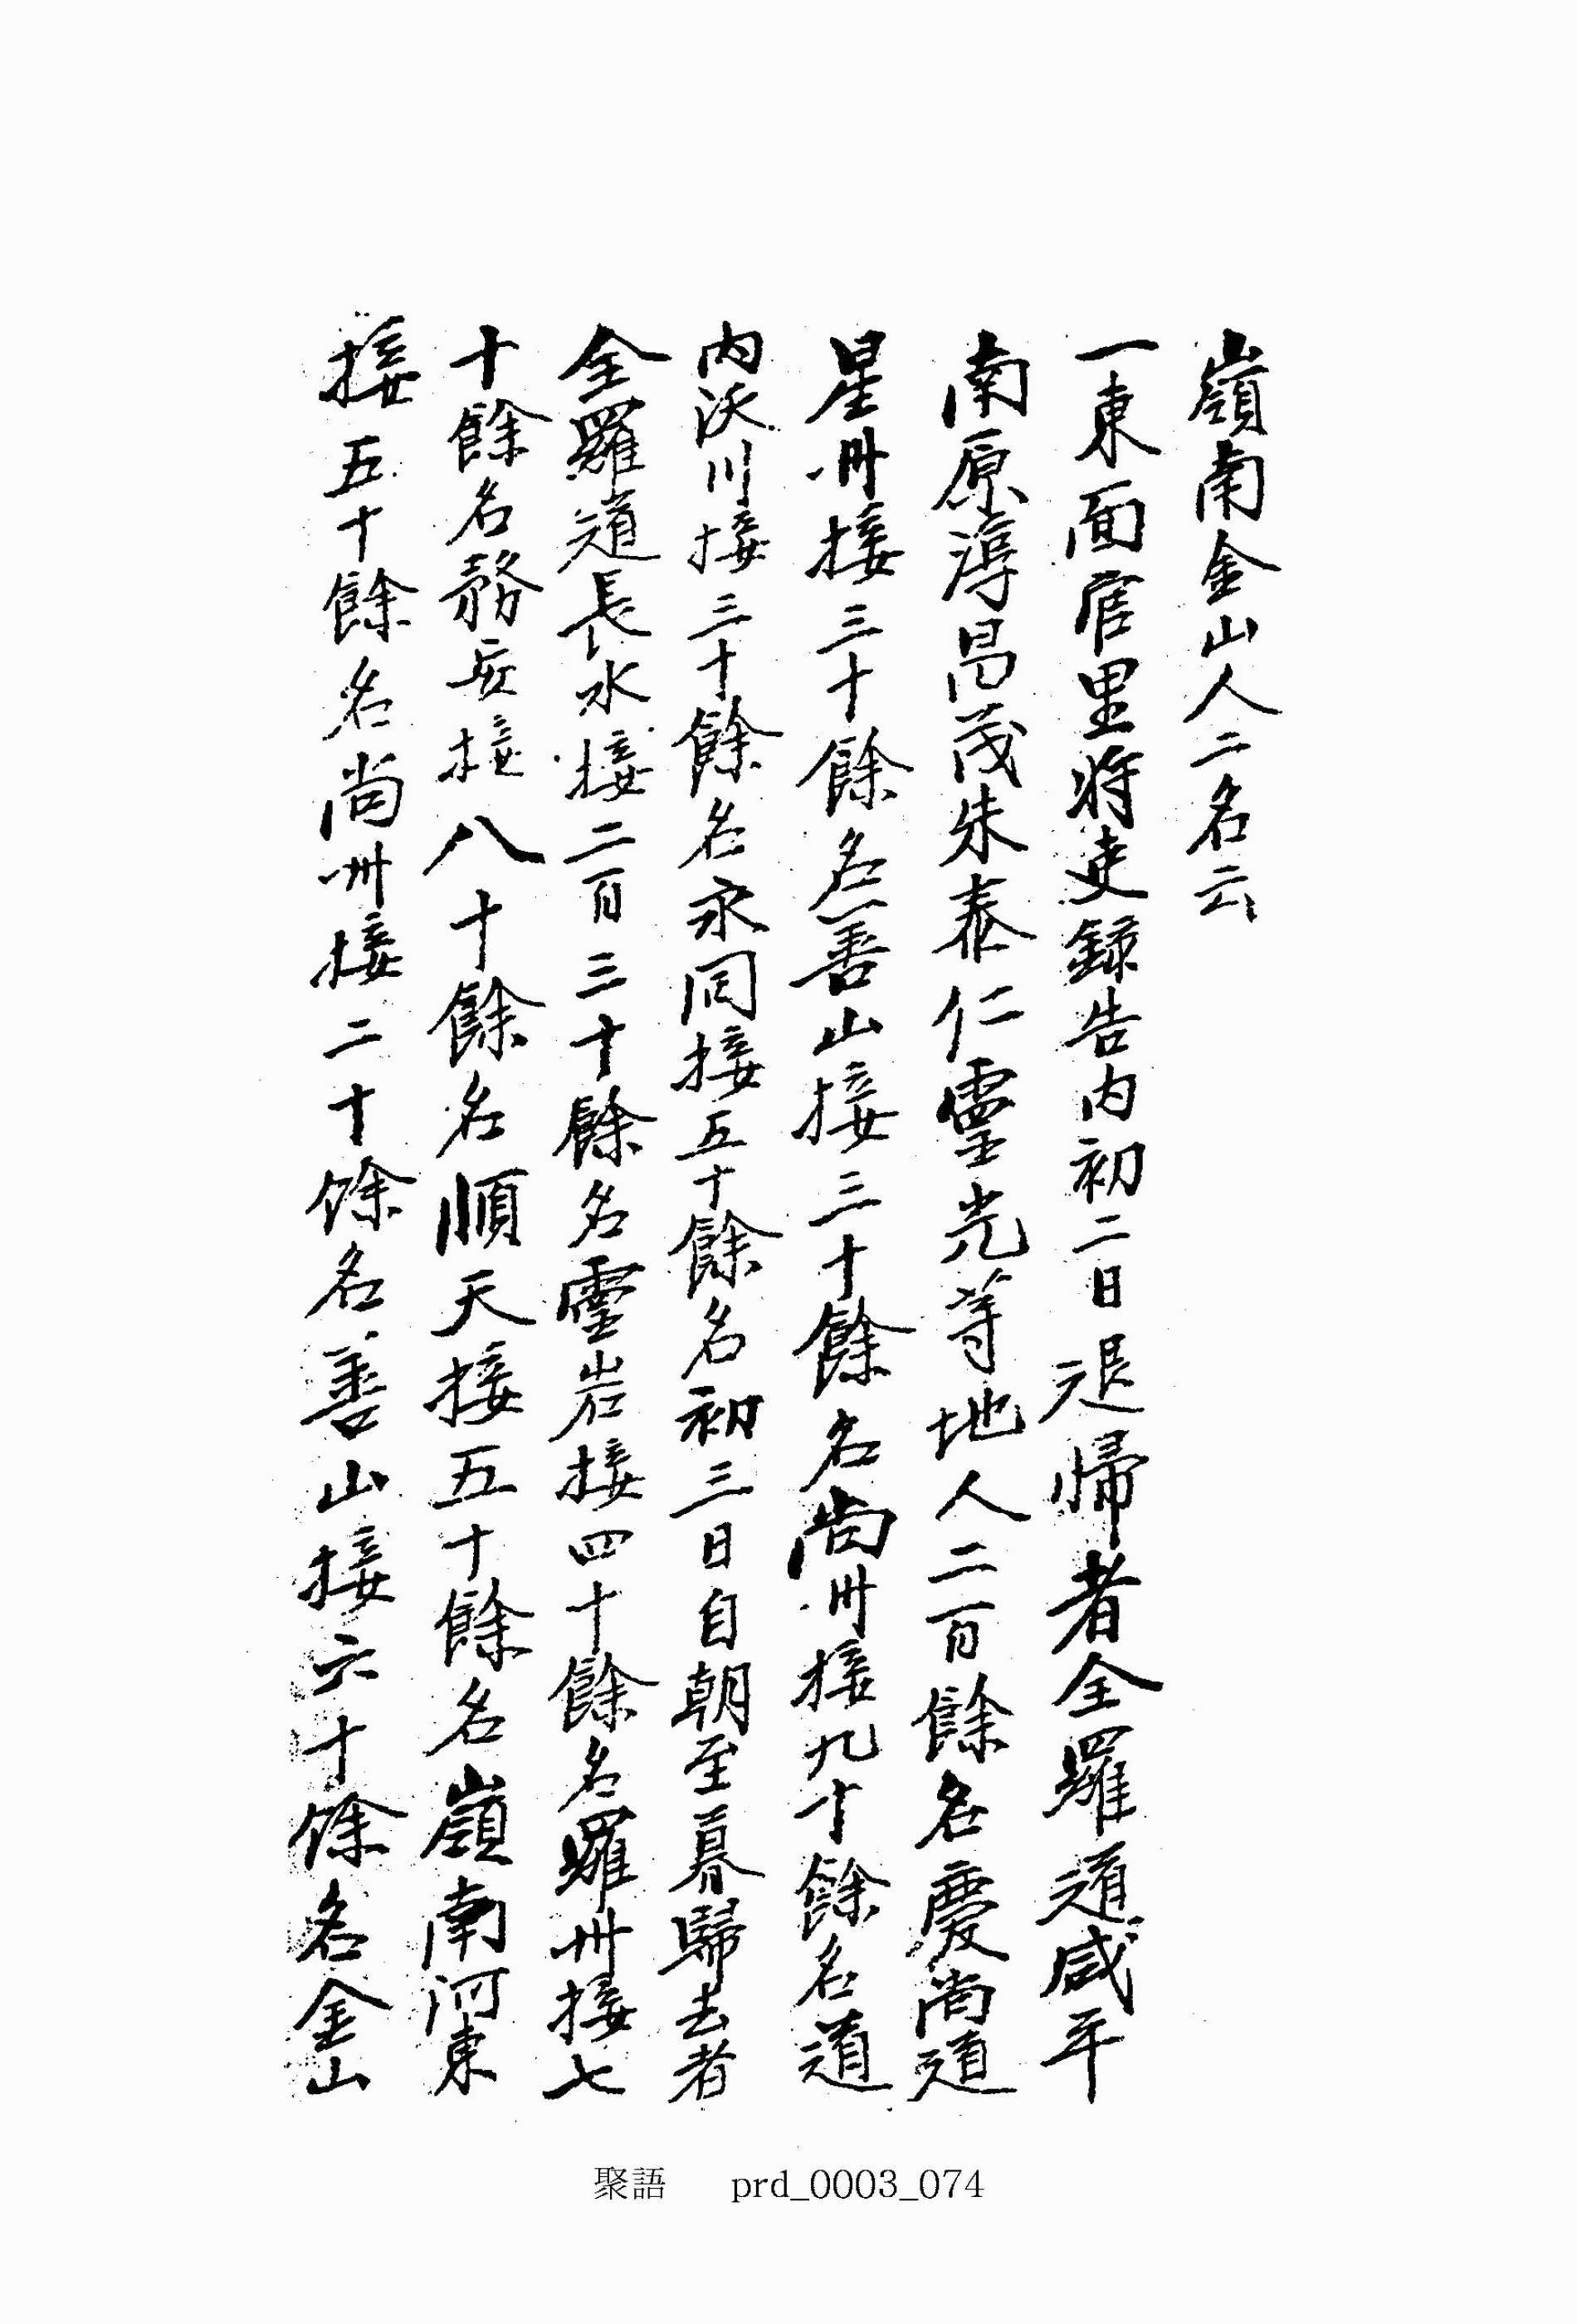 嶺南金山人二名云
一東面官里將吏錄告内初二日退歸者全羅道咸平
南原淳昌茂朱泰仁靈光等地人二百餘名慶尚道
星州接三十餘名善山接三十餘名尚州接九十餘名道
内沃川接三十餘名永同接五十餘名初三日自朝至暮歸去者
全羅道長水接二百三十餘名靈岩接四十餘名羅州接七
十餘名務安接八十餘名順天接五十餘名嶺南河東
接五十餘名尚州接二十馀名善山接六十馀名金山
聚語 prd_0003_074